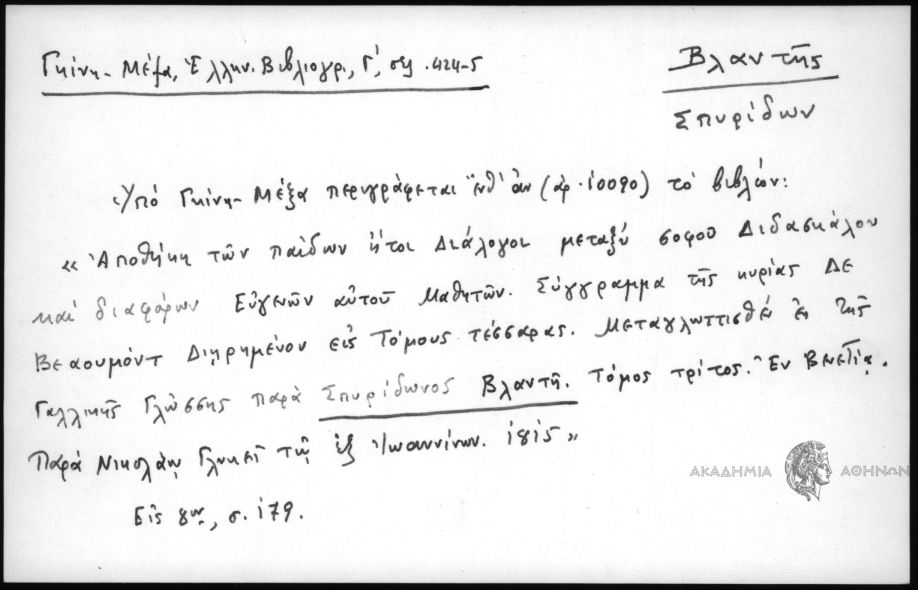 Γκίνη - Μέξα, Ἑλλην. Βιβλιογρ., Γ', σελ. 424-5
Βλαντῆς
Σπυρίδων
Ὑπό Γκίνη - Μέξα περιγράφεται ἐνθ' ἀν (ἀρ. 10090) τὸ βιβλίον:
« Ἀποθήκη τῶν παίδων ἤτοι Διάλογοι μεταξύ σοφοῦ Διδασκάλου
καί διαφόρων Εὐγενῶν αὐτοῦ Μαθητῶν. Σύγγραμμα τῆς κυρίας Δε
Βεαουμόντ Διῃρημένον εἰς Τόμους τέσσαρας. Μεταγλωττισθέν ἐκ τῆς
Γαλλικῆς Γλώσσης παρά Σπυρίδωνος Βλαντῆ. Τόμος τρίτος. Ἐν Βενετίᾳ.
Παρά Νικολάῳ Γλυκεῖ τῷ ἐξ Ἰωαννίνων. 1815 »
Εἰς 8ον, σ. 179.
ΑΚΑΔΗΜΙΑ ΑΘΗΝΩΝ